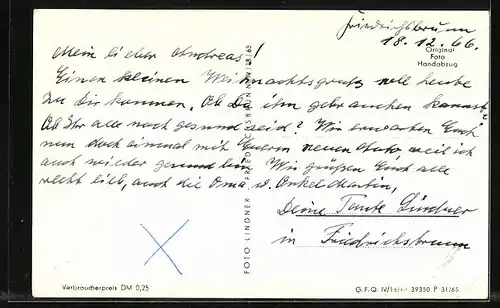 Friedrichsbrunn
18.12.66.
Original
Foto
Handabzug
Mein lieber Andreas!
Einen kleinen Weihnachtsgruß soll heute
zu Dir kommen. Ob Du ihn gebrauchen kannst?
Ob Ihr alle noch gesund seid? Wir erwarten Euch
nun doch einmal mit Eurem neuen Auto, weil ich
auch wieder gesund bin. Wir grüßen Euch alle
recht lieb, auch die Oma u. Onkel Martin,
Deine Tante Lindner
in Friedrichsbrunn
FOTO LINDNER FRIEDRICHSBRUNN
Verbraucherpreis DM 0,25
G.F.Q. 39350 P 31/65